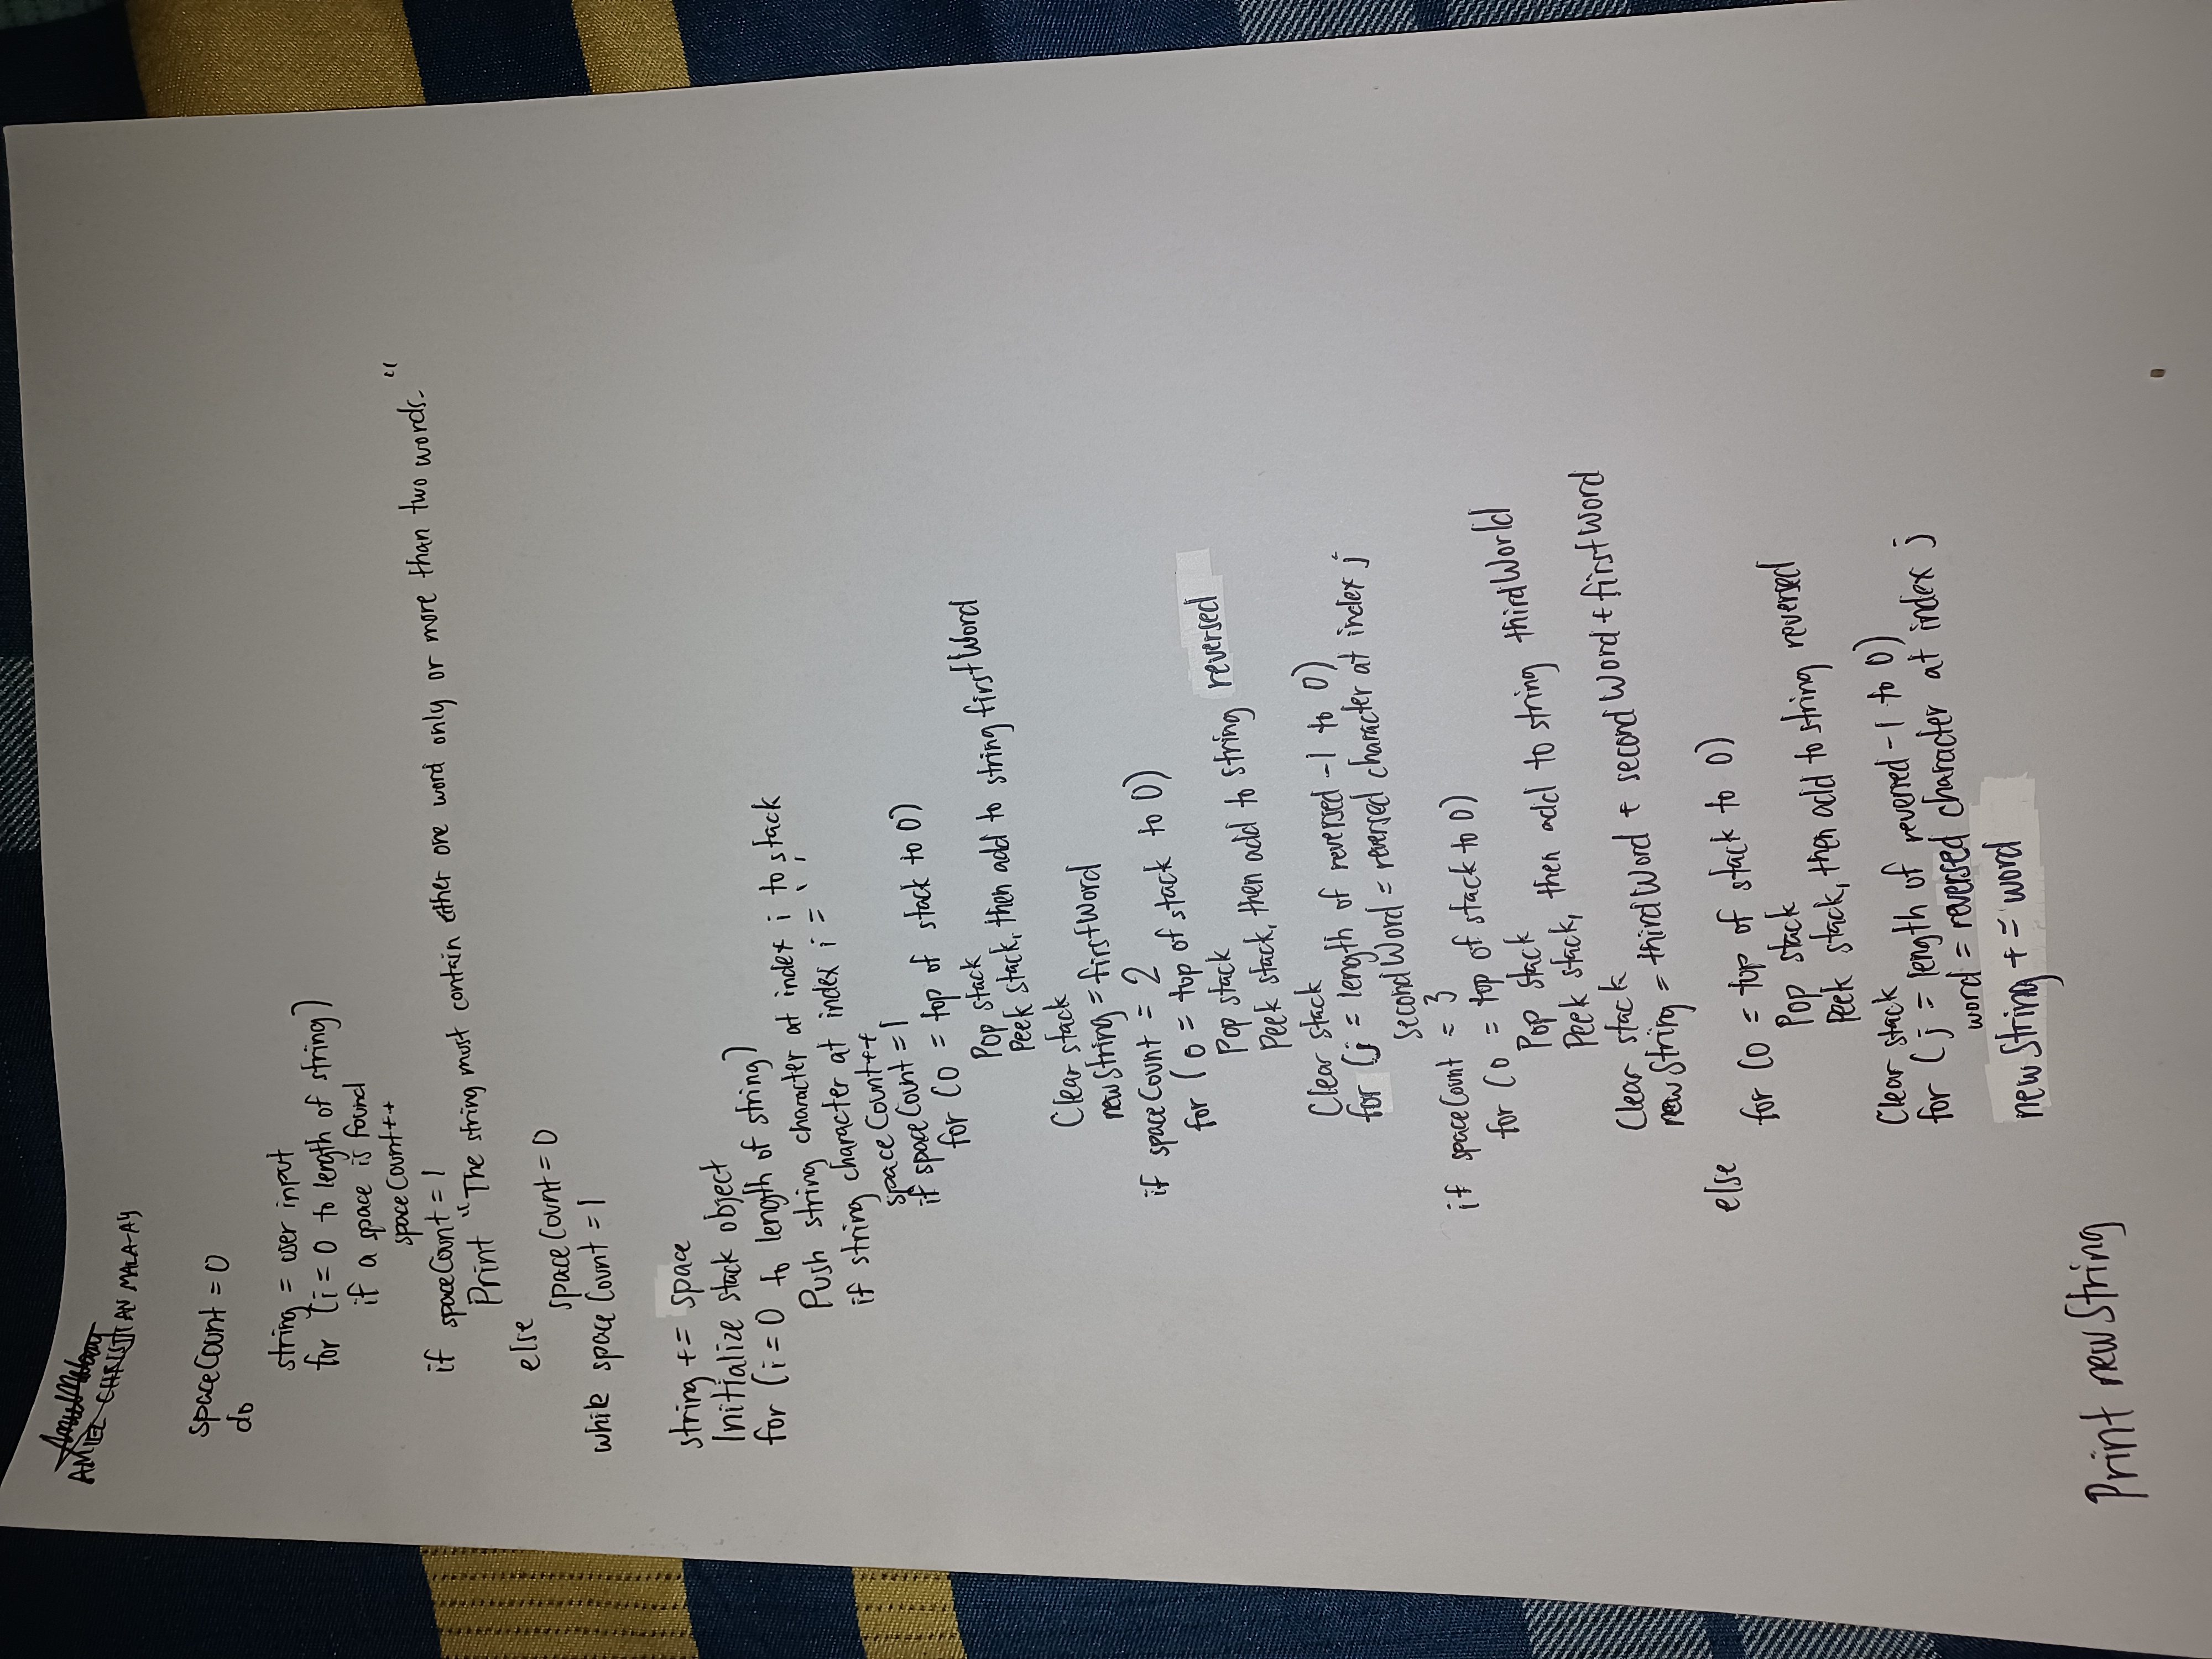 AMIEL CHRISTIAN MALA-AY
spaceCount = 0
do
string = user input
for (i = 0 to length of string)
if a space is found
spaceCount++
if spaceCount = 1
Print "The string must contain either one word only or more than two words."
else
spaceCount = 0
while spaceCount = 1
string += space
Initialize stack object
for (i = 0 to length of string)
Push string character at index i to stack
if string character at index i = ' '
spaceCount++
if spaceCount = 1
for (o = top of stack to 0)
Pop stack
Peek stack, then add to string firstWord
Clear stack
newString = firstWord
if spaceCount = 2
for (o = top of stack to 0)
Pop stack
Peek stack, then add to string reversed
Clear stack
for (j = length of reversed -1 to 0)
secondWord = reversed character at index j
if spaceCount = 3
for (o = top of stack to 0)
Pop stack
Peek stack, then add to string thirdWorld
Clear stack
newString = thirdWord + secondWord + firstWord
else
for (o = top of stack to 0)
Pop stack
Peek stack, then add to string reversed
Clear stack
for (j = length of reversed -1 to 0)
word = reversed character at index j
newString += word
Print newString